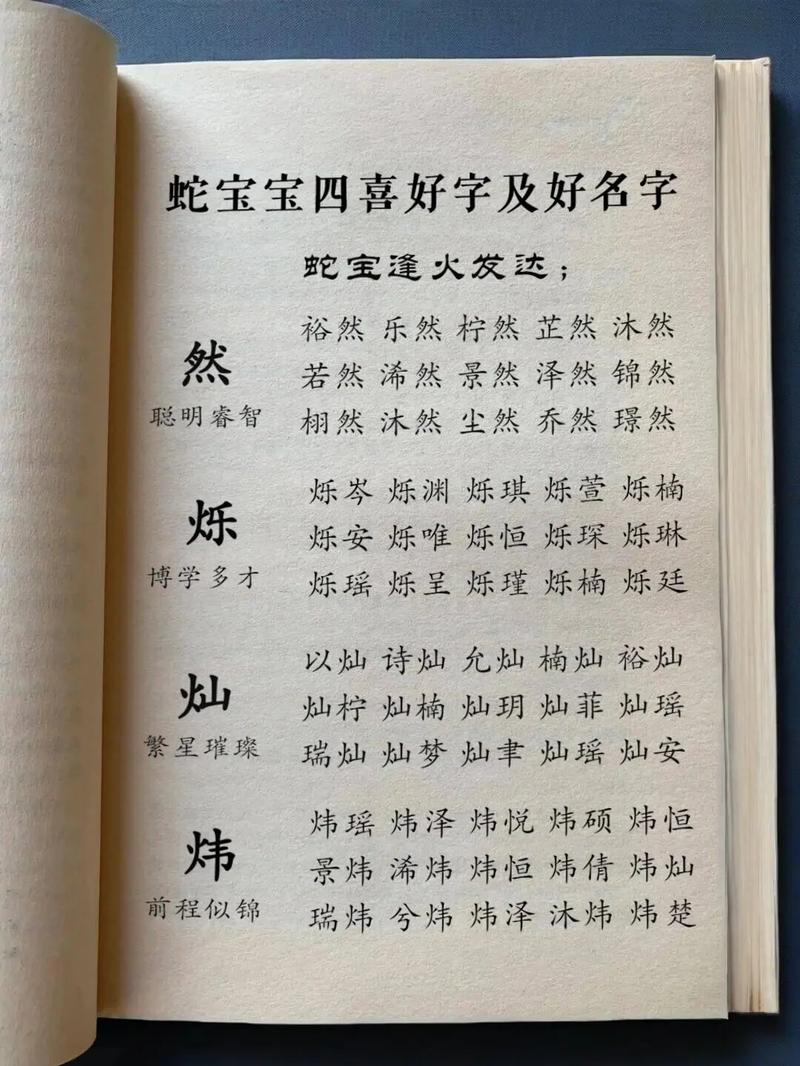 蛇宝宝四喜好字及好名字
蛇宝逢火发达；
然
聪明睿智
裕然 乐然 柠然 芷然 沐然
若然 浠然 景然 泽然 锦然
栩然 沐然 尘然 乔然 璟然
烁
博学多才
烁岑 烁渊 烁琪 烁萱 烁楠
烁安 烁唯 烁恒 烁琛 烁琳
烁瑶 烁呈 烁瑾 烁楠 烁廷
灿
繁星璀璨
以灿 诗灿 允灿 楠灿 裕灿
灿柠 灿楠 灿玥 灿菲 灿瑶
瑞灿 灿梦 灿聿 灿瑶 灿安
炜
前程似锦
炜瑶 炜泽 炜悦 炜硕 炜恒
景炜 浠炜 炜恒 炜倩 炜灿
瑞炜 兮炜 炜泽 沐炜 炜楚